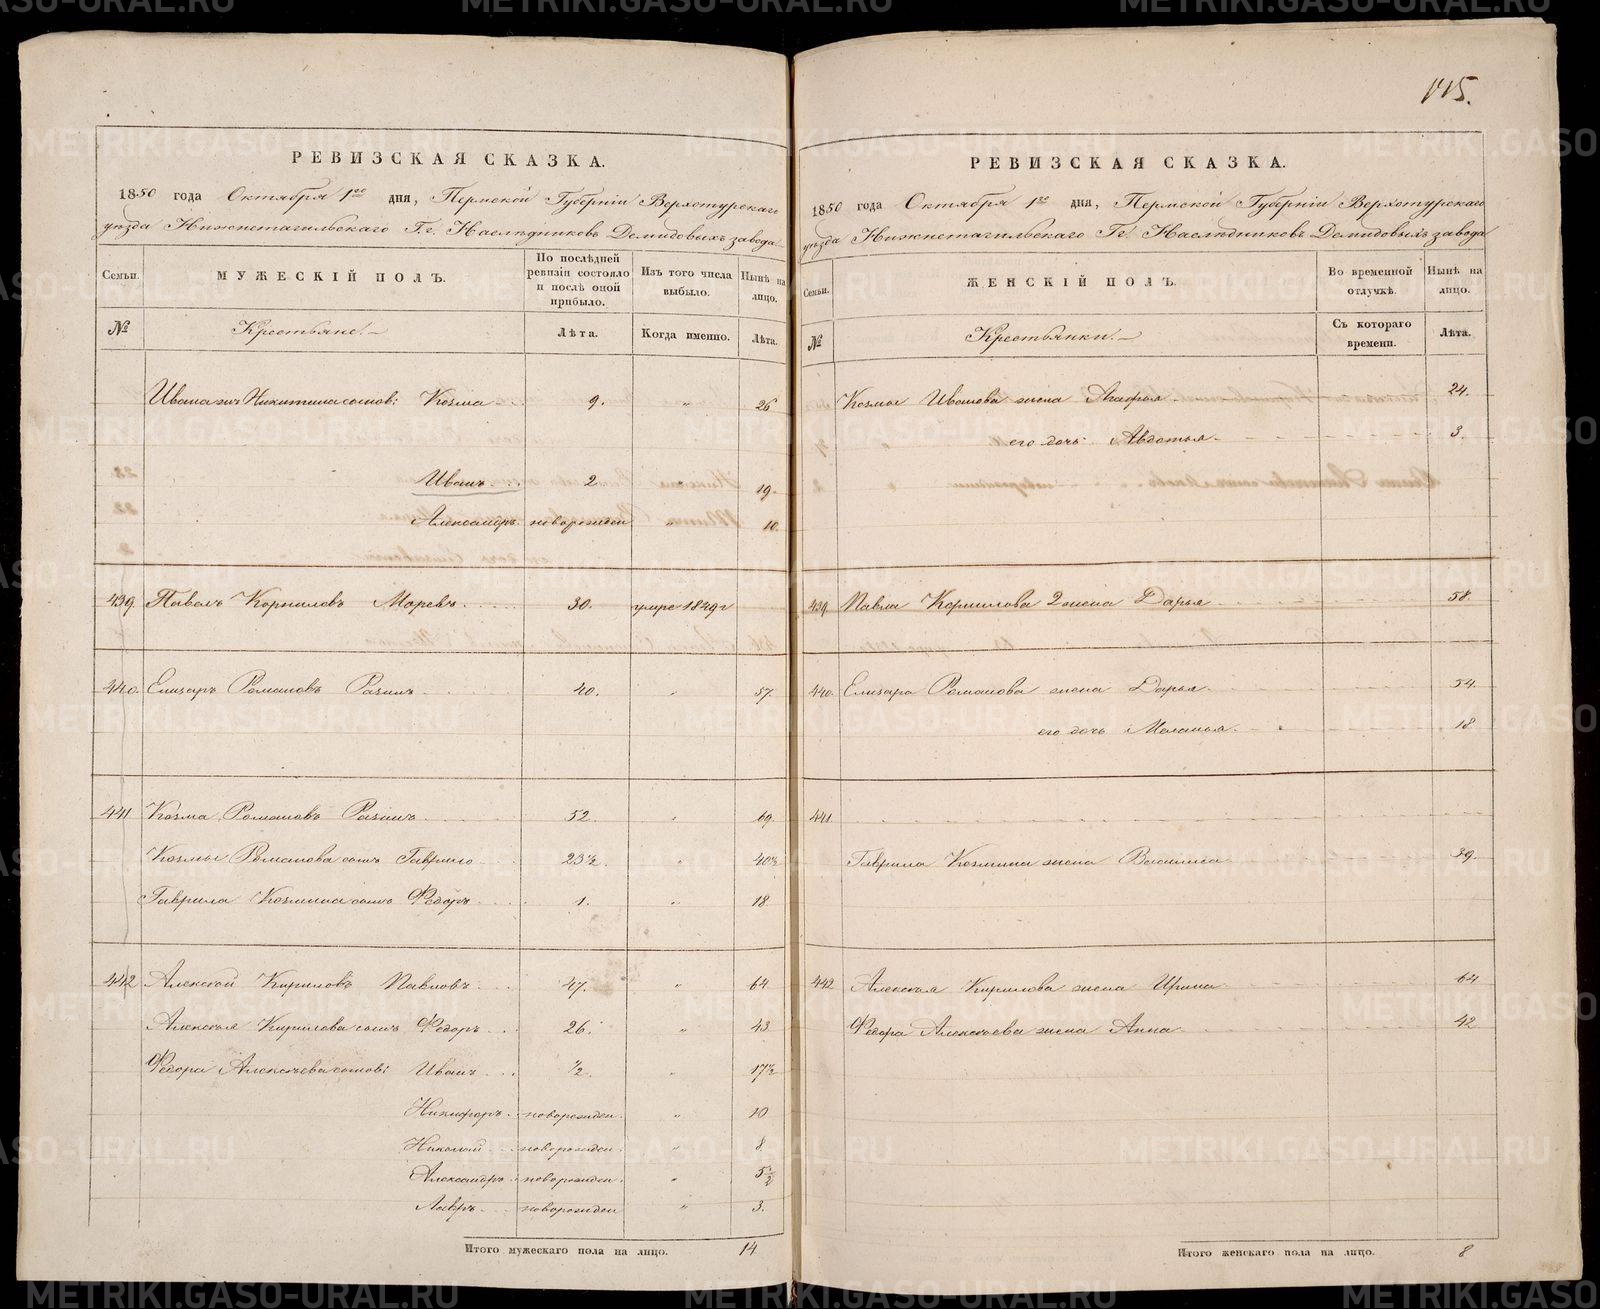 РЕВИЗСКАЯ СКАЗКА.
1850 года Октября 1го дня, Пермской Губернiи Верхотурскаго
уѣзда Нижнетагильскаго Г.г. Наслѣдниковъ Демидовыхъ завода
Семьи. МУЖЕСКIЙ ПОЛЪ. По послѣдней ревизiи состояло и послѣ оной прибыло. Изъ того числа выбыло. Нынѣ на лицо.
№ Крестьяне. Лѣта. Когда именно. Лѣта.
Ивана Никитина сынов: Козма 9. " 26
Иванъ 2 " 19.
Александръ новорожден " 10.
439. Павелъ Корниловъ 30. умре 1849 г
440. Елизаръ Романовъ Разинъ 40. " 57.
441 Козма Романовъ Разинъ 52. " 69.
Козмы Романова сынъ Гаврило 23½. " 40½
Гаврила Козмина сынъ Ѳедоръ 1. " 18
442 Алексѣй Кириловъ Павловъ 47. " 64
Алексѣя Кирилова сынъ Ѳедоръ 26. " 43
Ѳедора Алексѣева сынов: Иванъ ½. " 17½
Никифоръ новорожден. " 10
Николай новорожден. " 8.
Александръ новорожден. " 5½
Лавръ новорожден " 3.
Итого мужескаго пола на лицо. 14
115.
РЕВИЗСКАЯ СКАЗКА.
1850 года Октября 1го дня, Пермской Губернiи Верхотурскаго
уѣзда Нижнетагильскаго Гг. Наслѣдниковъ Демидовыхъ завода
Семьи. ЖЕНСКIЙ ПОЛЪ. Во временной отлучкѣ. Нынѣ на лицо.
№ Крестьянки. Съ котораго времени. Лѣта.
Козмы Иванова жена Агафья 24.
его дочь Авдотья 3.
439 Павла Корнилова 2 жена Дарья 58.
440. Елизара Романова жена Дарья 54.
его дочь Маланья 18
441.
Гаврила Козмина жена Василиса 39.
442 Алексѣя Кирилова жена Ирина 64
Ѳедора Алексѣева жена Анна 42
Итого женскаго пола на лицо. 8
METRIKI.GASO-URAL.RU